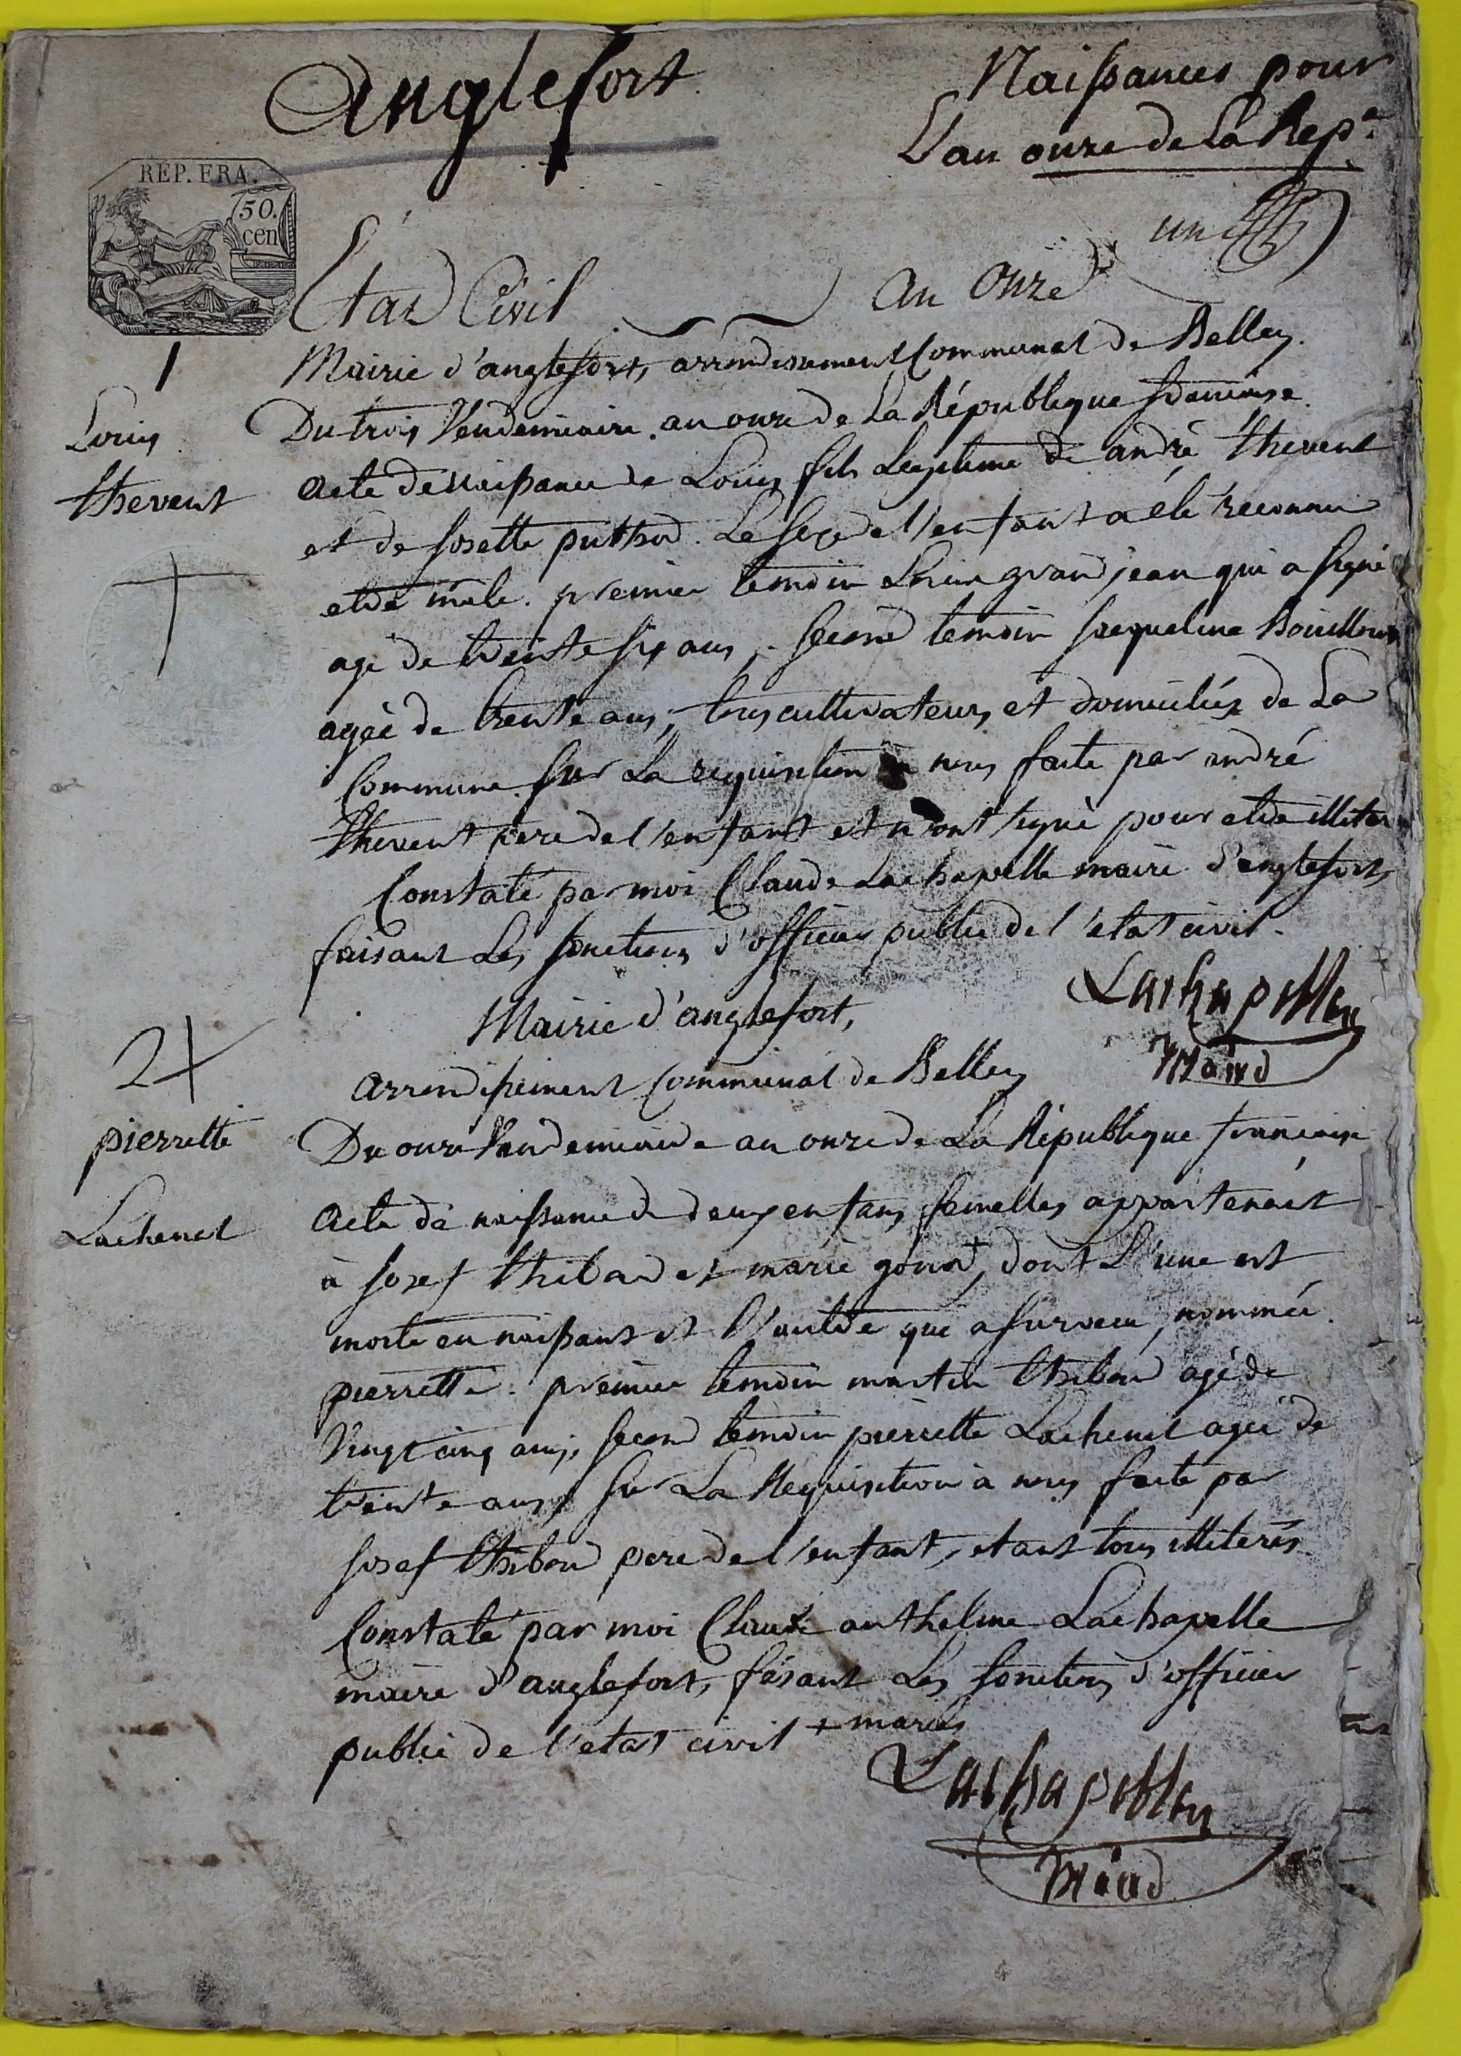 Anglefort
Naissances pour
L'an onze de la Rep.e
REP. FRA.
50.
cen
un
Etat Civil
An Onze
1
Mairie d'anglefort, arrondissement Communal de Belley.
Louis
Du trois Vendemiaire. an onze de La République francaise.
thevent
Acte de naissance de Louis fils Legitime de andré thevent
et de Josette puthod. Le sexe de l'enfant a été reconnu
etre mâle. premier temoin Louis grand jean qui a signé
age de trente six ans, second temoin Jacqueline Bouilloux
agée de trente ans, tous cultivateurs et domiciliés de La
Commune. sur La requisition à nous faite par andré
thevent pere de l'enfant et n'ont signé pour etre illiter
Constaté par moi Claude Lachapelle maire d'anglefort,
faisant Les fonctions d'officier public de l'etat civil.
Lachapelle
Maire
Mairie d'anglefort,
2
arrondissement Communal de Belley
pierrette
Du onze Vendemiaire an onze de La République francaise
Lachenal
Acte de naissance de deux enfans femelles appartenant
à Josef thibod et marie goind+, dont L'une est
morte en naissant et L'autre qui a survecu, nommée
pierrette. premier temoin martin thibod agé de
Vingt cinq ans, second temoin pierrette Lachenal agée de
trente ans, sur La Requisition à nous faite par
Josef thibod pere de l'enfant, etant tous illiterés
Constaté par moi Claude anthelme Lachapelle
maire d'anglefort, fesant Les fonctions d'officier
public de l'etat civil + mariés
Lachapelle
Maire